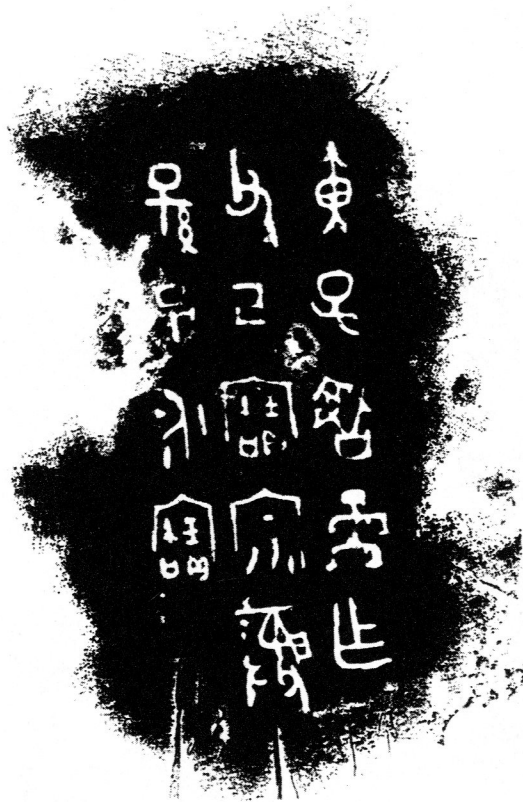 黃子魯天乍
父己寶宗彝
孫子永寶